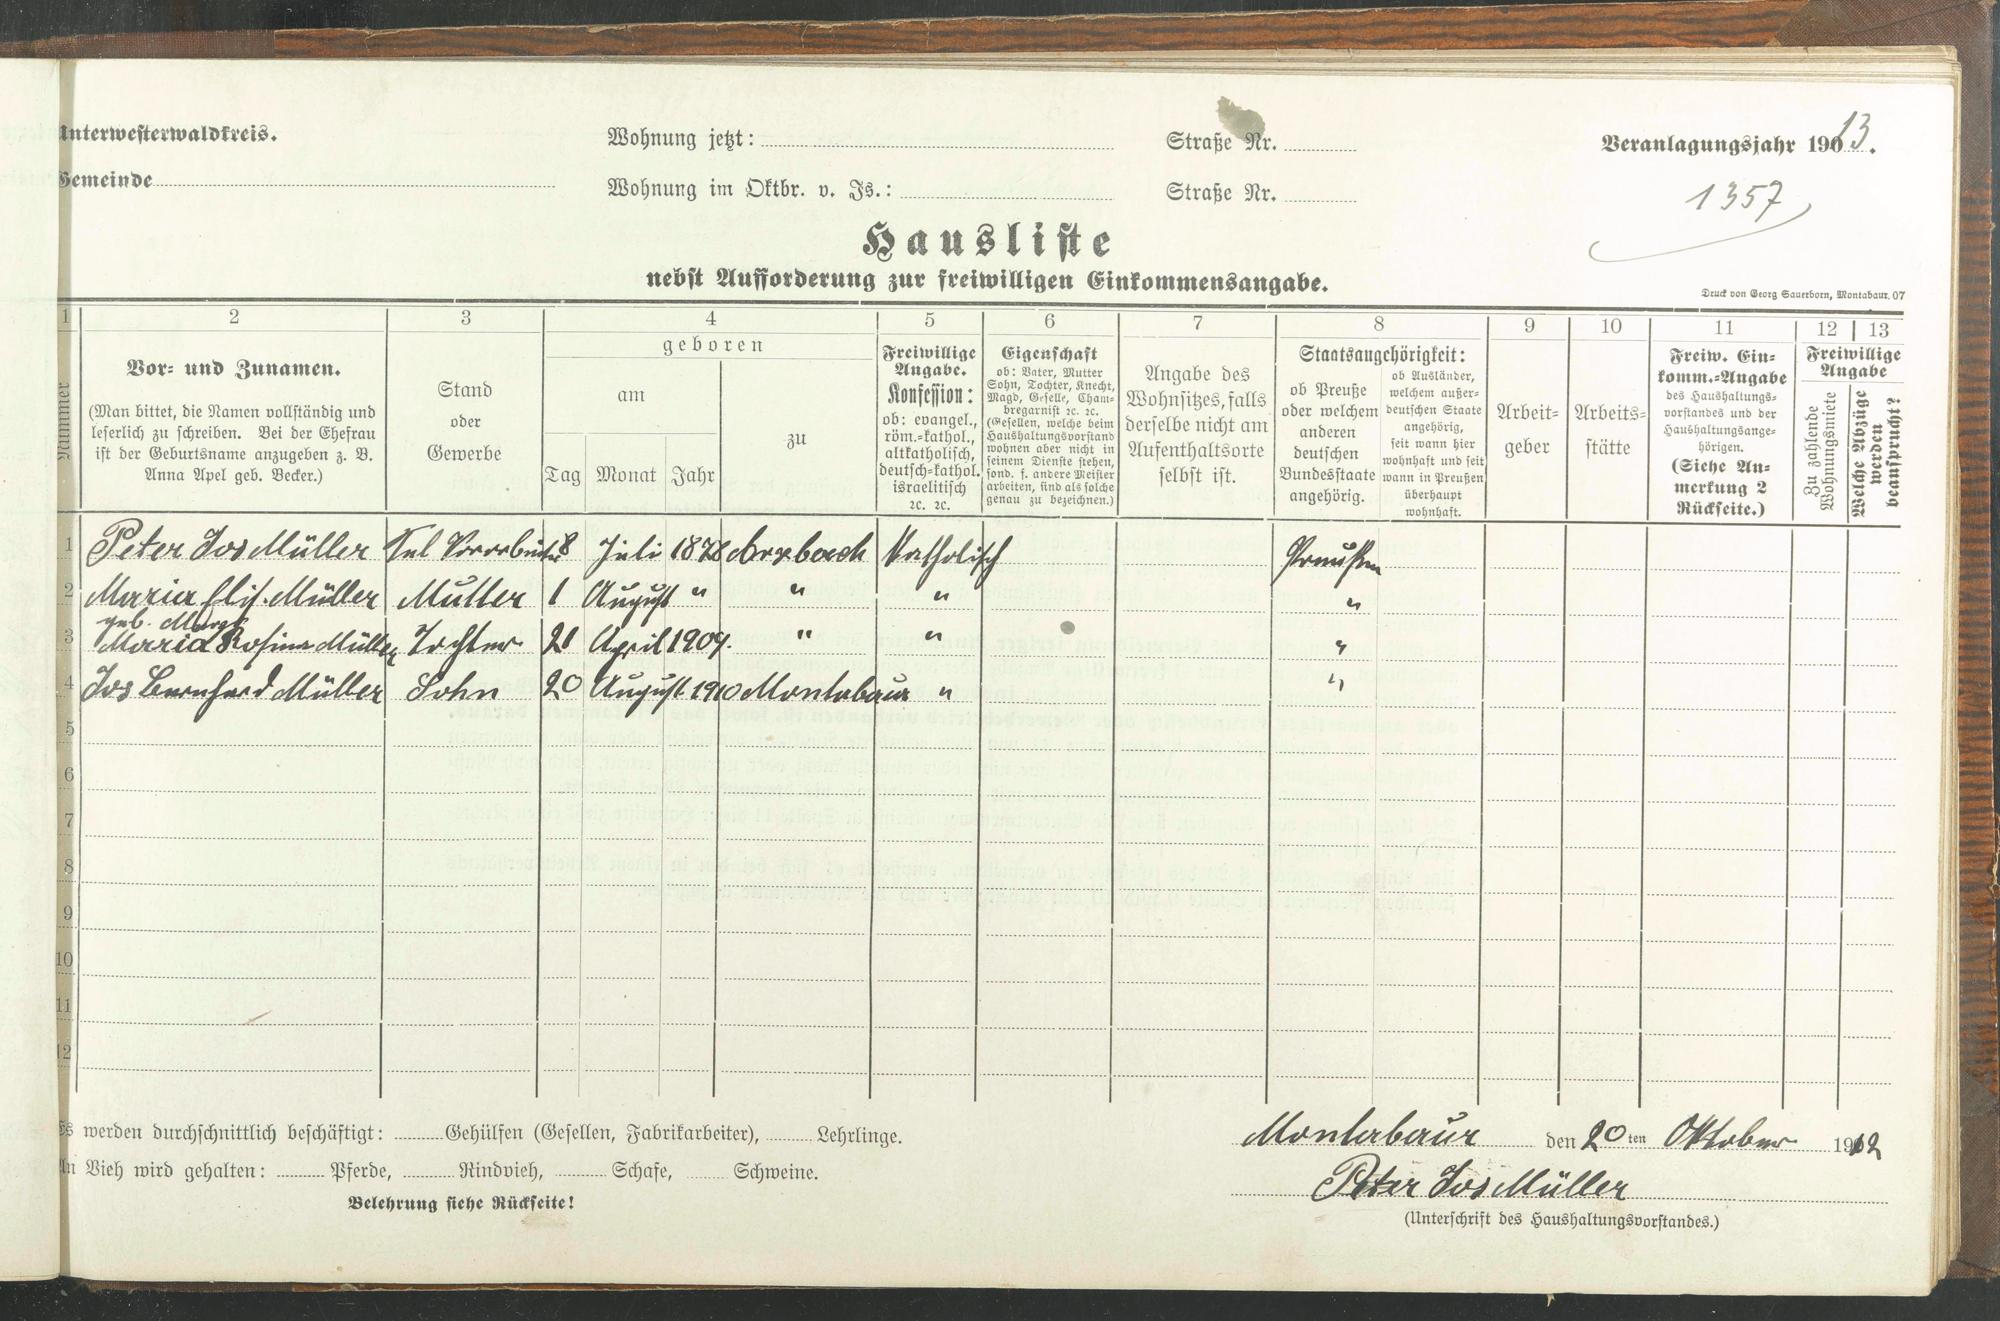 Unterwesterwaldkreis. Wohnung jetzt: Straße Nr. Veranlagungsjahr 1913.
Gemeinde Wohnung im Oktbr. v. Js.: Straße Nr. 1357
Hausliste
nebst Aufforderung zur freiwilligen Einkommensangabe.
Druck von Georg Sauerborn, Montabaur. 07
1 2 3 4 5 6 7 8 9 10 11 12 13
Nummer
Vor- und Zunamen.
(Man bittet, die Namen vollständig und
leserlich zu schreiben. Bei der Ehefrau
ist der Geburtsname anzugeben z. B.
Anna Apel geb. Becker.)
Stand
oder
Gewerbe
geboren
am
Tag Monat Jahr
zu
Freiwillige
Angabe.
Konfession:
ob: evangel.,
röm.-kathol.,
altkatholisch,
deutsch-kathol.
israelitisch
ꝛc. ꝛc.
Eigenschaft
ob: Vater, Mutter
Sohn, Tochter, Knecht,
Magd, Geselle, Cham-
bregarnist ꝛc. ꝛc.
(Gesellen, welche beim
Haushaltungsvorstand
wohnen aber nicht in
seinem Dienste stehen,
sond. f. andere Meister
arbeiten, sind als solche
genau zu bezeichnen.)
Angabe des
Wohnsitzes, falls
derselbe nicht am
Aufenthaltsorte
selbst ist.
Staatsangehörigkeit:
ob Preuße
oder welchem
anderen
deutschen
Bundesstaate
angehörig.
ob Ausländer,
welchem außer-
deutschen Staate
angehörig,
seit wann hier
wohnhaft und seit
wann in Preußen
überhaupt
wohnhaft.
Arbeit-
geber
Arbeits-
stätte
Freiw. Ein-
komm.-Angabe
des Haushaltungs-
vorstandes und der
Haushaltungsange-
hörigen.
(Siehe An-
merkung 2
Rückseite.)
Freiwillige
Angabe
Zu zahlende
Wohnungsmiete
Welche Abzüge
werden
beansprucht?
1 Peter Jos Müller 8 Juli 1878 Arzbach Katholisch Preußen
2 Maria Elis. Müller Mutter 1 August " " " "
geb.
3 Maria Rosina Müller Tochter 21 April 1909. " " "
4 Jos Bernhard Müller Sohn 20 August 1910 Montabaur " "
5
6
7
8
9
10
11
12
Es werden durchschnittlich beschäftigt: Gehülfen (Gesellen, Fabrikarbeiter), Lehrlinge.
An Vieh wird gehalten: Pferde, Rindvieh, Schafe, Schweine.
Belehrung siehe Rückseite!
Montabaur den 20 ten Oktober 1912
Peter Jos Müller
(Unterschrift des Haushaltungsvorstandes.)